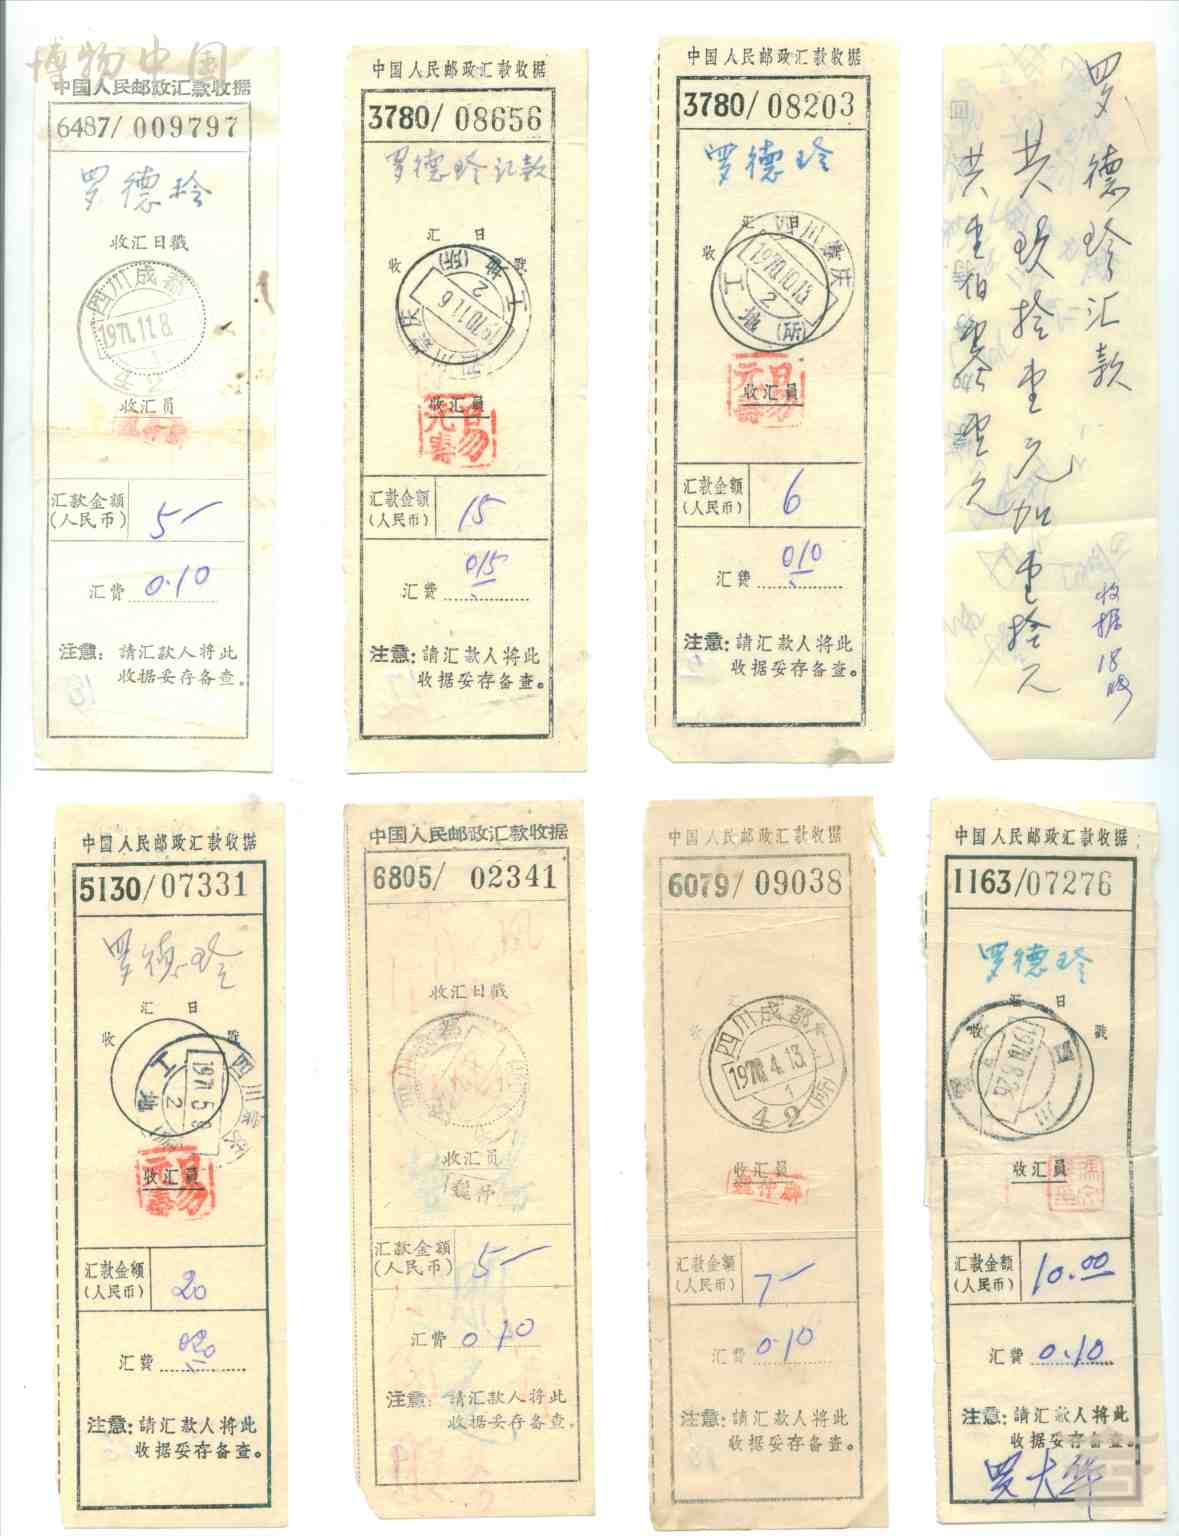 博物中国
中国人民邮政汇款收据
6487/ 009797
罗德玲
收汇日戳
四川成都
1971.11.8.
1
42
收汇员
汇款金额
(人民币)
5-
汇费 0.10
注意：請汇款人将此
收据妥存备查。
中国人民邮政汇款收据
3780/ 08656
罗德玲记款
汇 日
收 戳
1970.11.6
2
工地(所)
收汇员
易元寿
汇款金额
(人民币)
15
汇费 015
注意：請汇款人将此
收据妥存备查。
中国人民邮政汇款收据
3780/ 08203
罗德玲
汇 日
收
四川重庆
1970.10.13
2
工地(所)
收汇员
易元寿
汇款金额
(人民币)
6
汇费 010
注意：請汇款人将此
收据妥存备查。
罗德玲汇款
收据18张
共玖拾壹元加壹拾元
共壹佰零壹元
中国人民邮政汇款收据
5130/07331
罗德玲
汇 日
收 戳
四川重庆
1971.5.8
2
工地
收汇员
易元寿
汇款金额
(人民币)
20
汇费 020
注意：請汇款人将此
收据妥存备查。
中国人民邮政汇款收据
6805/ 02341
收汇日戳
收汇员
汇款金额
(人民币)
5-
汇费 0.10
注意：請汇款人将此
收据妥存备查。
中国人民邮政汇款收据
6079/ 09038
四川成都
1970.4.13.
1
42(所)
收汇员
汇款金额
(人民币)
7-
汇费 0.10
注意：請汇款人将此
收据妥存备查。
中国人民邮政汇款收据
1163/07276
罗德玲
汇 日
收 戳
1970.8.26
收汇员
汇款金额
(人民币)
10.00
汇费 0.10
注意：請汇款人将此
收据妥存备查。
罗大华